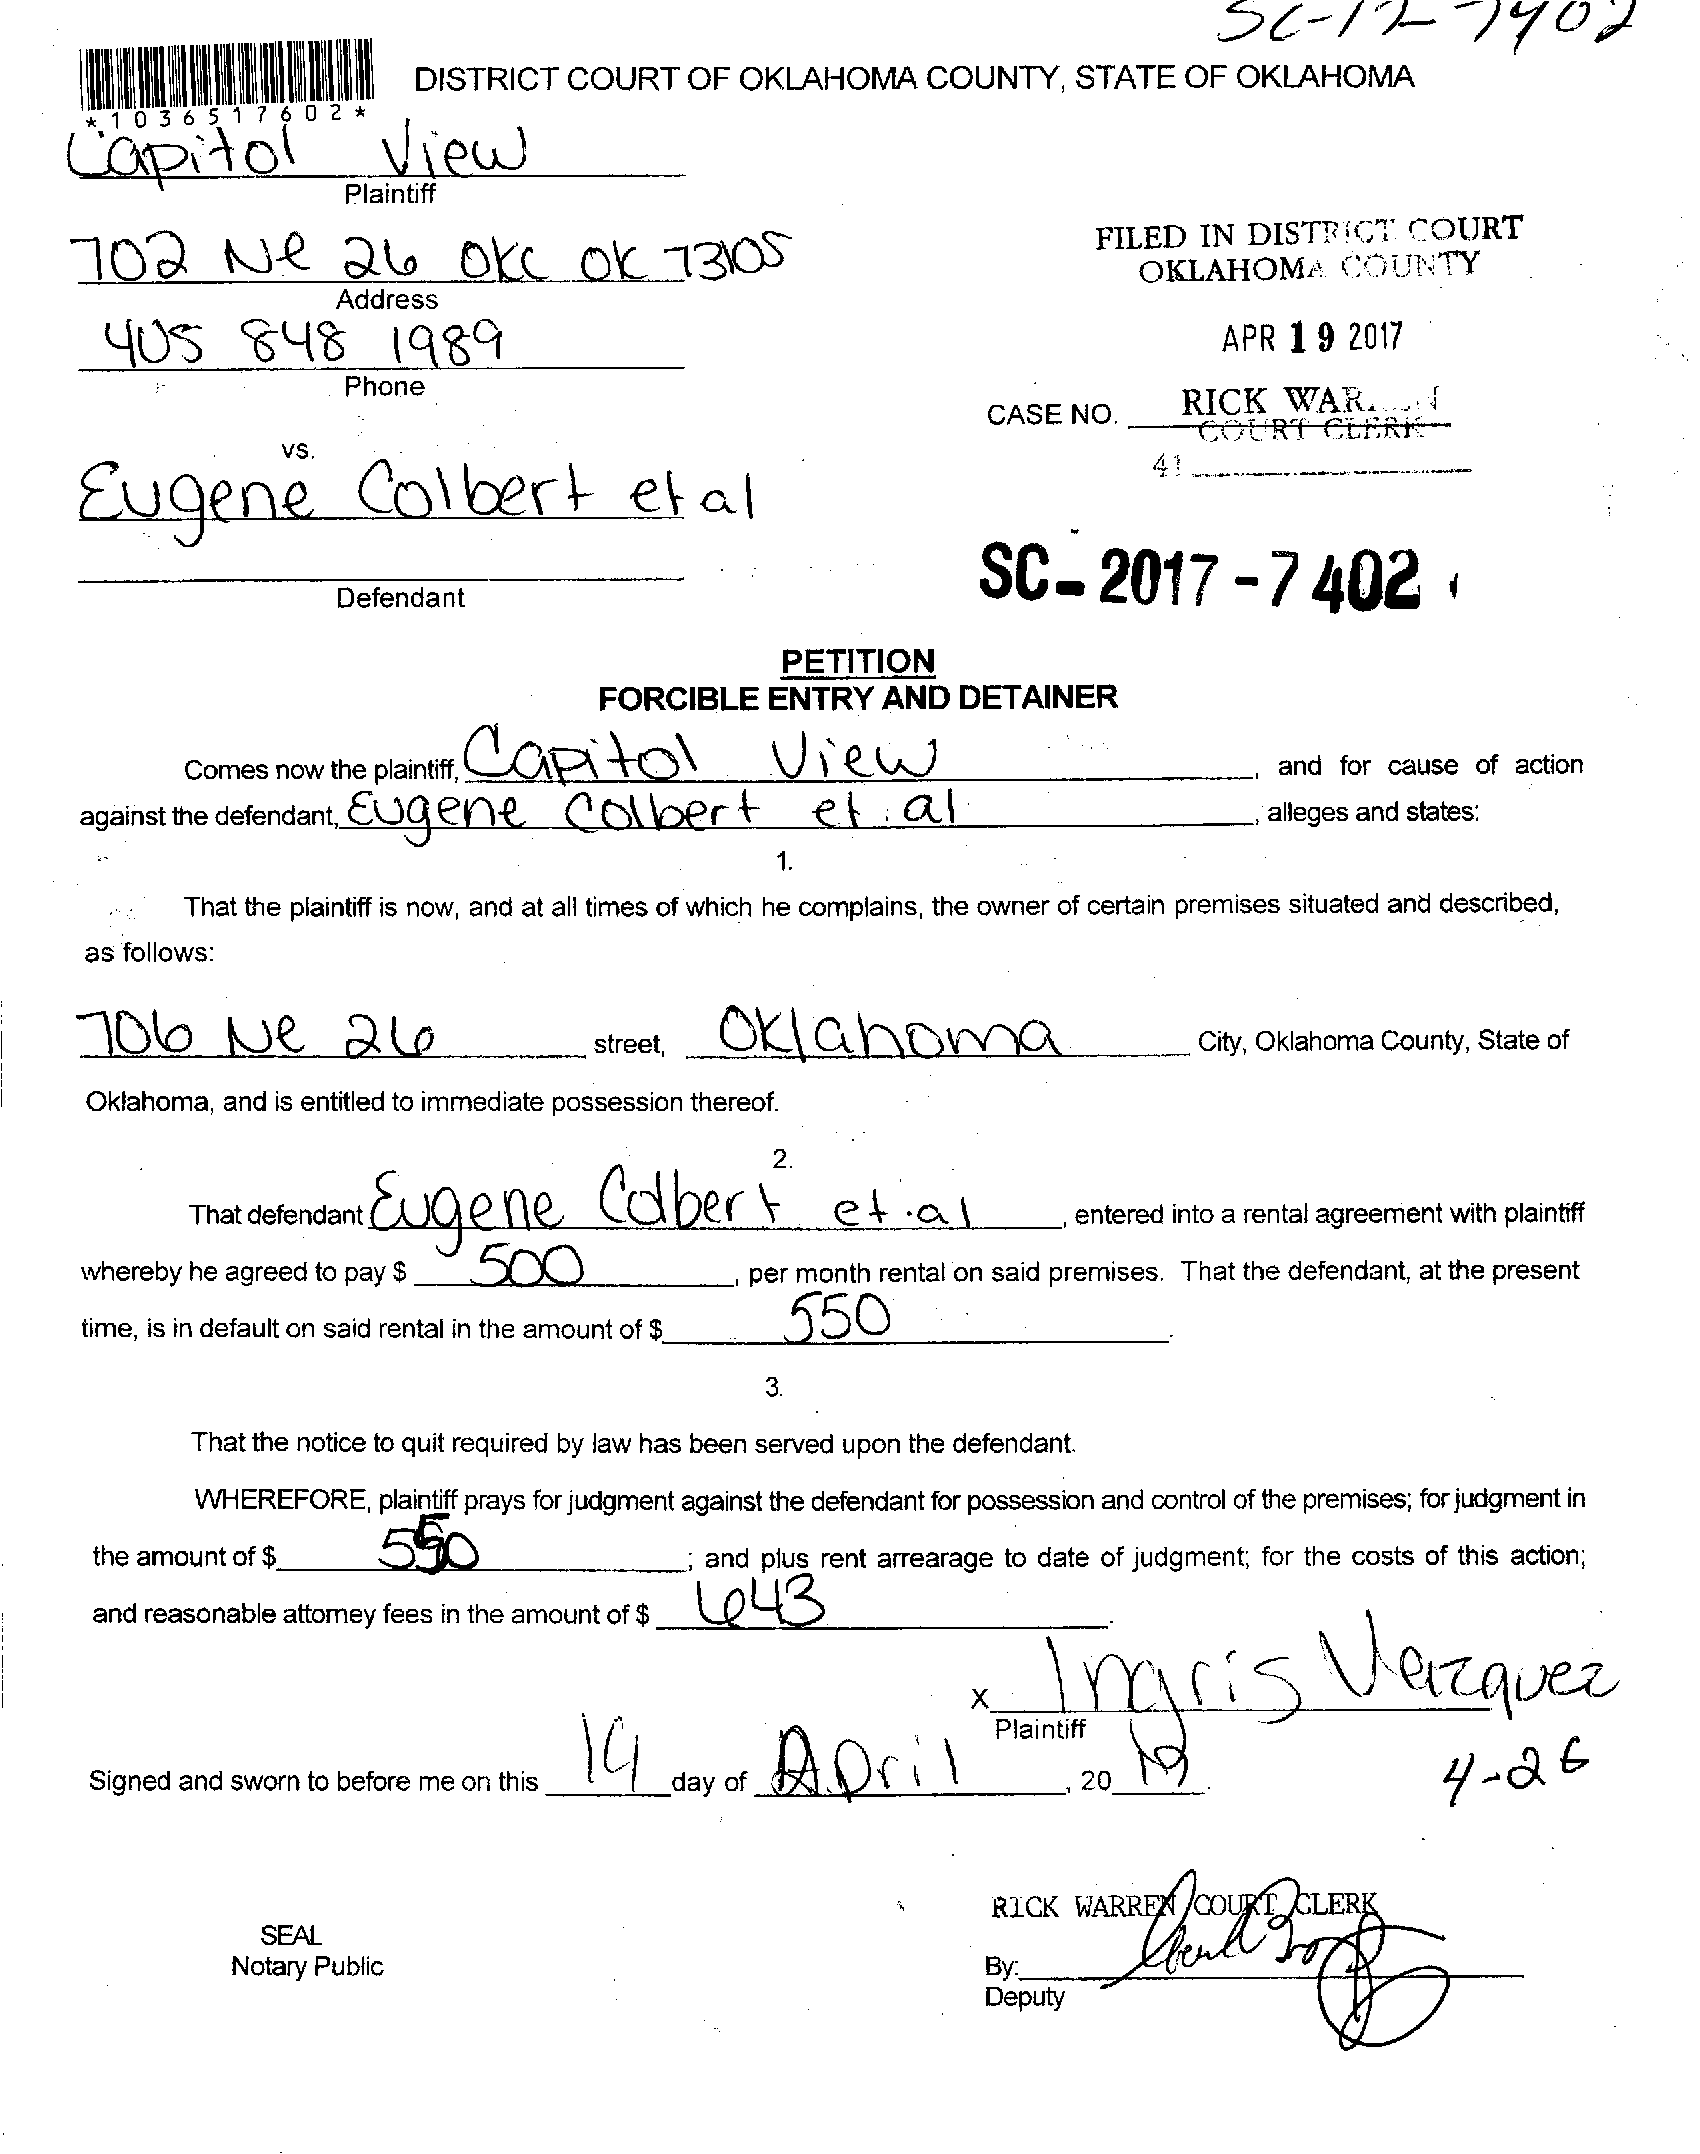 SC-17-7402
DISTRICT COURT OF OKLAHOMA COUNTY, STATE OF OKLAHOMA
*1036517602*
Capitol View
Plaintiff
702 Ne 26 OKC OK 73105
Address
405 848 1989
Phone
FILED IN DISTRICT COURT
OKLAHOMA COUNTY
APR 19 2017
RICK WARREN
CASE NO.
COURT CLERK
41
vs.
Eugene Colbert et al
Defendant
SC-2017-7402
PETITION
FORCIBLE ENTRY AND DETAINER
Comes now the plaintiff, Capitol View, and for cause of action
against the defendant, Eugene Colbert et al, alleges and states:
1.
That the plaintiff is now, and at all times of which he complains, the owner of certain premises situated and described,
as follows:
706 Ne 26 street, Oklahoma City, Oklahoma County, State of
Oklahoma, and is entitled to immediate possession thereof.
2.
That defendant Eugene Colbert et al, entered into a rental agreement with plaintiff
whereby he agreed to pay $ 500, per month rental on said premises. That the defendant, at the present
time, is in default on said rental in the amount of $ 550.
3.
That the notice to quit required by law has been served upon the defendant.
WHEREFORE, plaintiff prays for judgment against the defendant for possession and control of the premises; for judgment in
the amount of $ 550; and plus rent arrearage to date of judgment; for the costs of this action;
and reasonable attorney fees in the amount of $ 643.
x Ingris Vazquez
Plaintiff
Signed and sworn to before me on this 19 day of April, 2017.
4-26
RICK WARREN COURT CLERK
SEAL
Notary Public
By:
Deputy